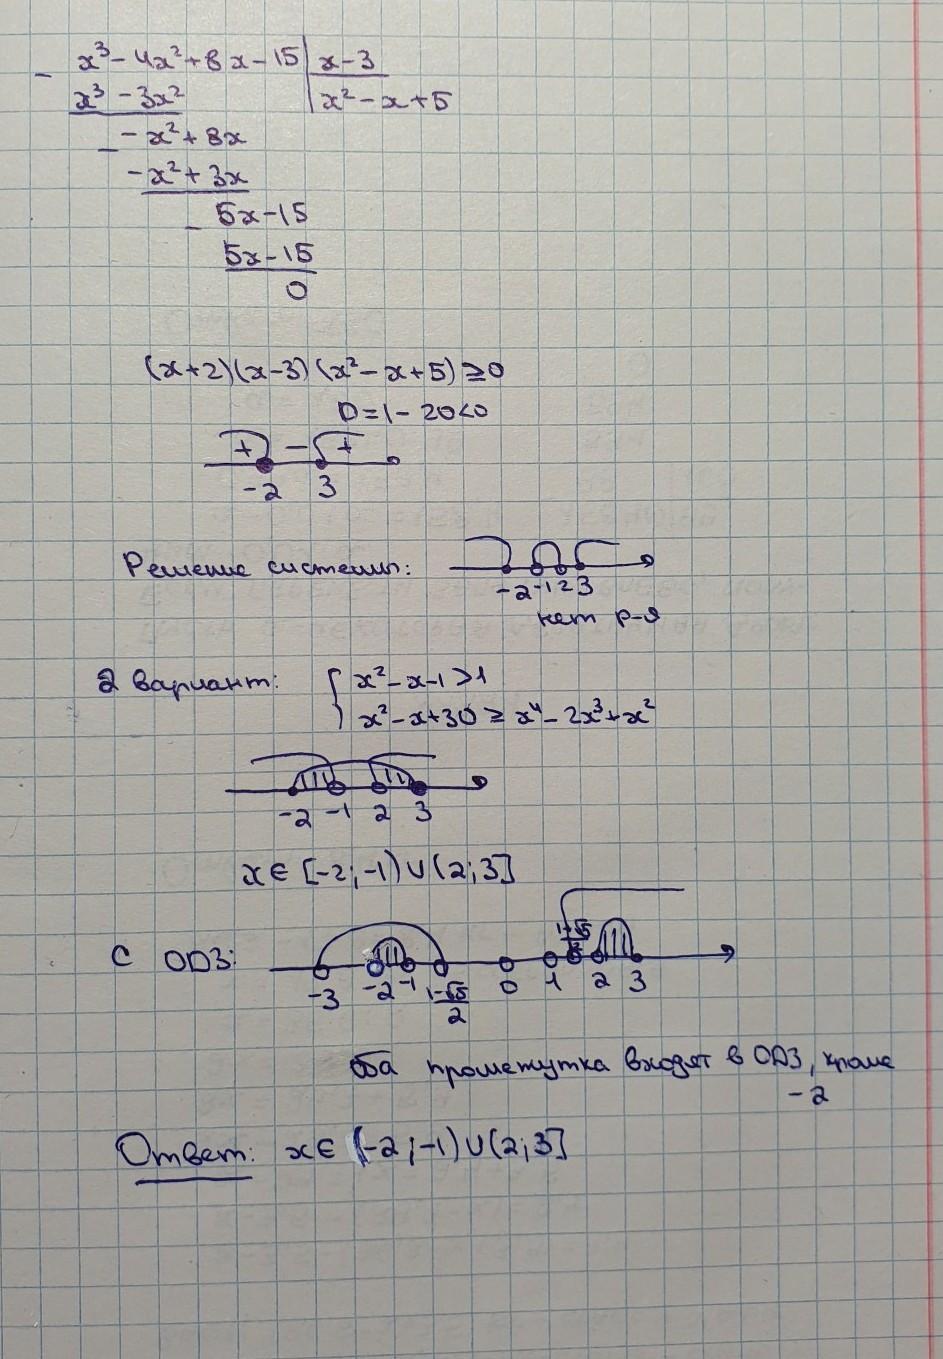 x³ - 4x² + 8x - 15 | x - 3
x³ - 3x² | x² - x + 5
- x² + 8x
- x² + 3x
5x - 15
5x - 15
0
(x+2)(x-3)(x² - x + 5) ≥ 0
D = 1 - 20 < 0
+ - +
-2 3
Решение системы:
-2 -1 2 3
нет р-я
2 вариант: { x² - x - 1 > 1
x² - x + 30 ≥ x⁴ - 2x³ + x²
-2 -1 2 3
x ∈ [-2; -1) ∪ (2; 3]
С ОДЗ:
-3 -2 -1 (1-√5)/2 0 1 2 3
оба промежутка входят в ОДЗ, кроме
-2
Ответ: x ∈ (-2; -1) ∪ (2; 3]